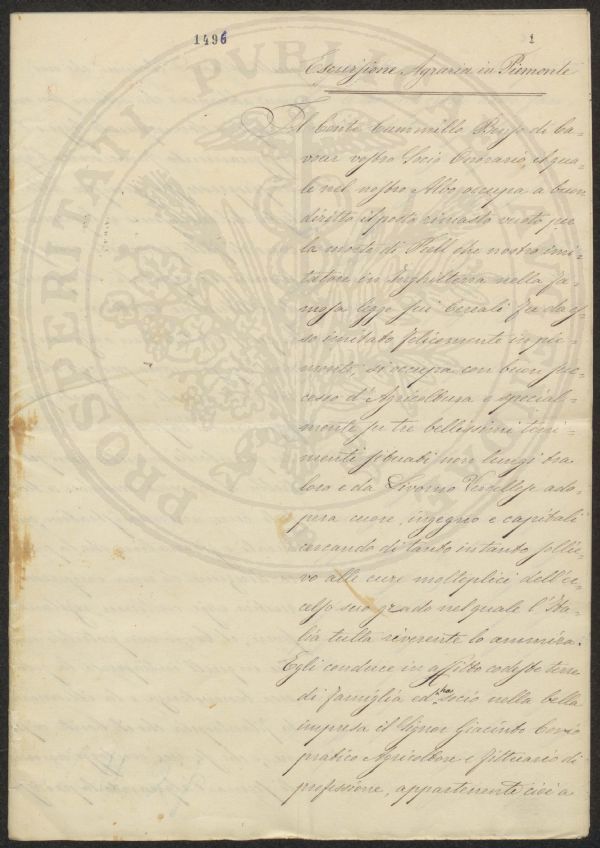 1496
1
Escursione Agraria in Piemonte
Il Conte Cammillo Benso di Ca=
vour vostro Socio Onorario, il qua=
le nel nostro Albo occupa a buon
diritto il posto rimasto vuoto per
la morte di Peel che nostro imi=
tatore in Inghilterra nella fa=
mosa legge sui Cereali fu da es=
so imitato felicemente in pie=
monte, si occupa con buon suc=
cesso d'Agricoltura e special=
mente su tre bellissimi teni=
menti situati non lungi tra
loro e da Livorno Vercellese ado=
pera cuore, ingegno e capitali
cercando di tanto in tanto sollie=
vo alle cure molteplici dell'ec=
celso suo grado nel quale l'Ita=
lia tutta riverente lo ammira.
Egli conduce in affitto codeste terre
di famiglia ed ha Socio nella bella
impresa il Signor Giacinto Corio
pratico Agricoltore e fittuario di
professione, appartenente cioè a
PROSPERITATI PUBLICAE